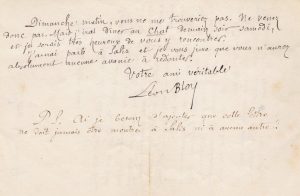 Dimanche matin, vous ne me trouveriez pas. Ne venez
donc pas. Mais j'irai dîner au Chat demain soir samedi,
et je serais très heureux de vous y rencontrer.
J'aurai parlé à Salis et je vous jure que vous n'avez
absolument aucune avanie à redouter.
Votre ami véritable
Léon Bloy
P. S. Ai-je besoin d'ajouter que cette lettre
ne doit jamais être montrée à Salis ni à aucun autre ?